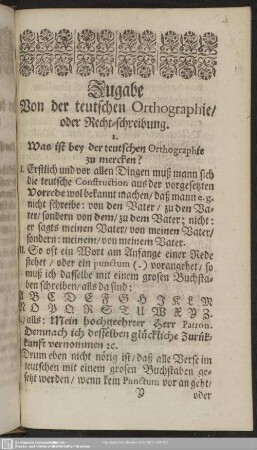 Zugabe
Von der teutschen Orthographie/
oder Recht-schreibung.
1.
Was ist bey der teutschen Orthographie
zu mercken?
I. Erstlich und vor allen Dingen muß mann sich
die teutsche Construction aus der vorgesetzten
Vorrede wol bekannt machen/ daß mann e. g.
nicht schreibe: von den Vater/ zu den Va-
ter/ sondern von dem/ zu dem Vater; nicht:
er sagts meinen Vater/ von meinen Vater/
sondern: meinem/ von meinem Vater.
II. So oft ein Wort am Anfange einer Rede
stehet/ oder ein punctum (.) vorangehet/ so
muß ich dasselbe mit einem grosen Buchsta-
ben schreiben/ als da sind:
A B C D E F G H I K L M
N O P Q R S T U W X Y Z.
alls: Mein hochgeehrter Herr Patron.
Demnach ich desselben glückliche Zurük-
kunft vernommen ꝛc.
Drum eben nicht nötig ist/ daß alle Verse im
teutschen mit einem grosen Buchstaben ge-
setzt werden/ wenn kein Punctum vor an geht/
P oder